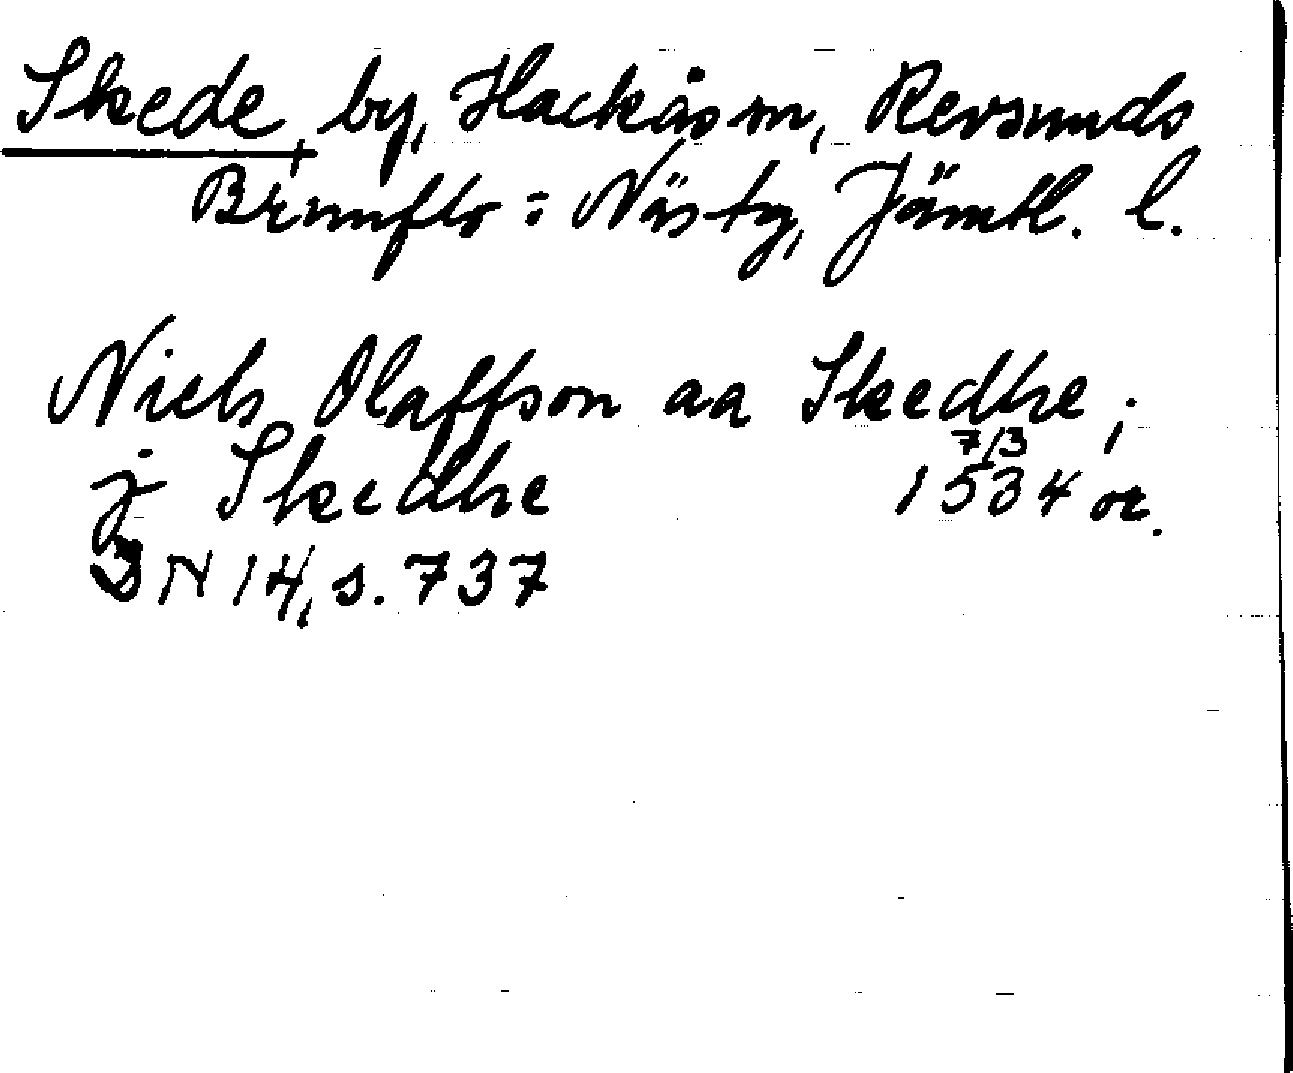 Skede, by, Hackås sn, Revsunds
Brunflo : Näs tg, Jämtl. l.
Niels Olaffson aa Skedhe ;
7/3
j Skedhe 1534 or.
DN 14, s. 737